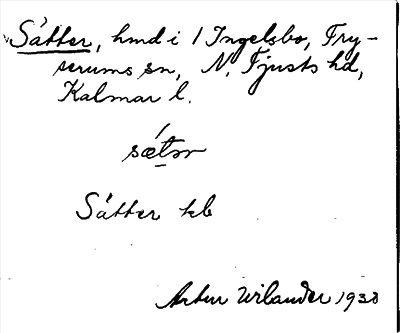 Sätter, hmd i 1 Ingelsbo, Try-
serums sn, N. Tjusts hd,
Kalmar l.
sæ̀tər
Sätter kb
Artur Wilander 1930